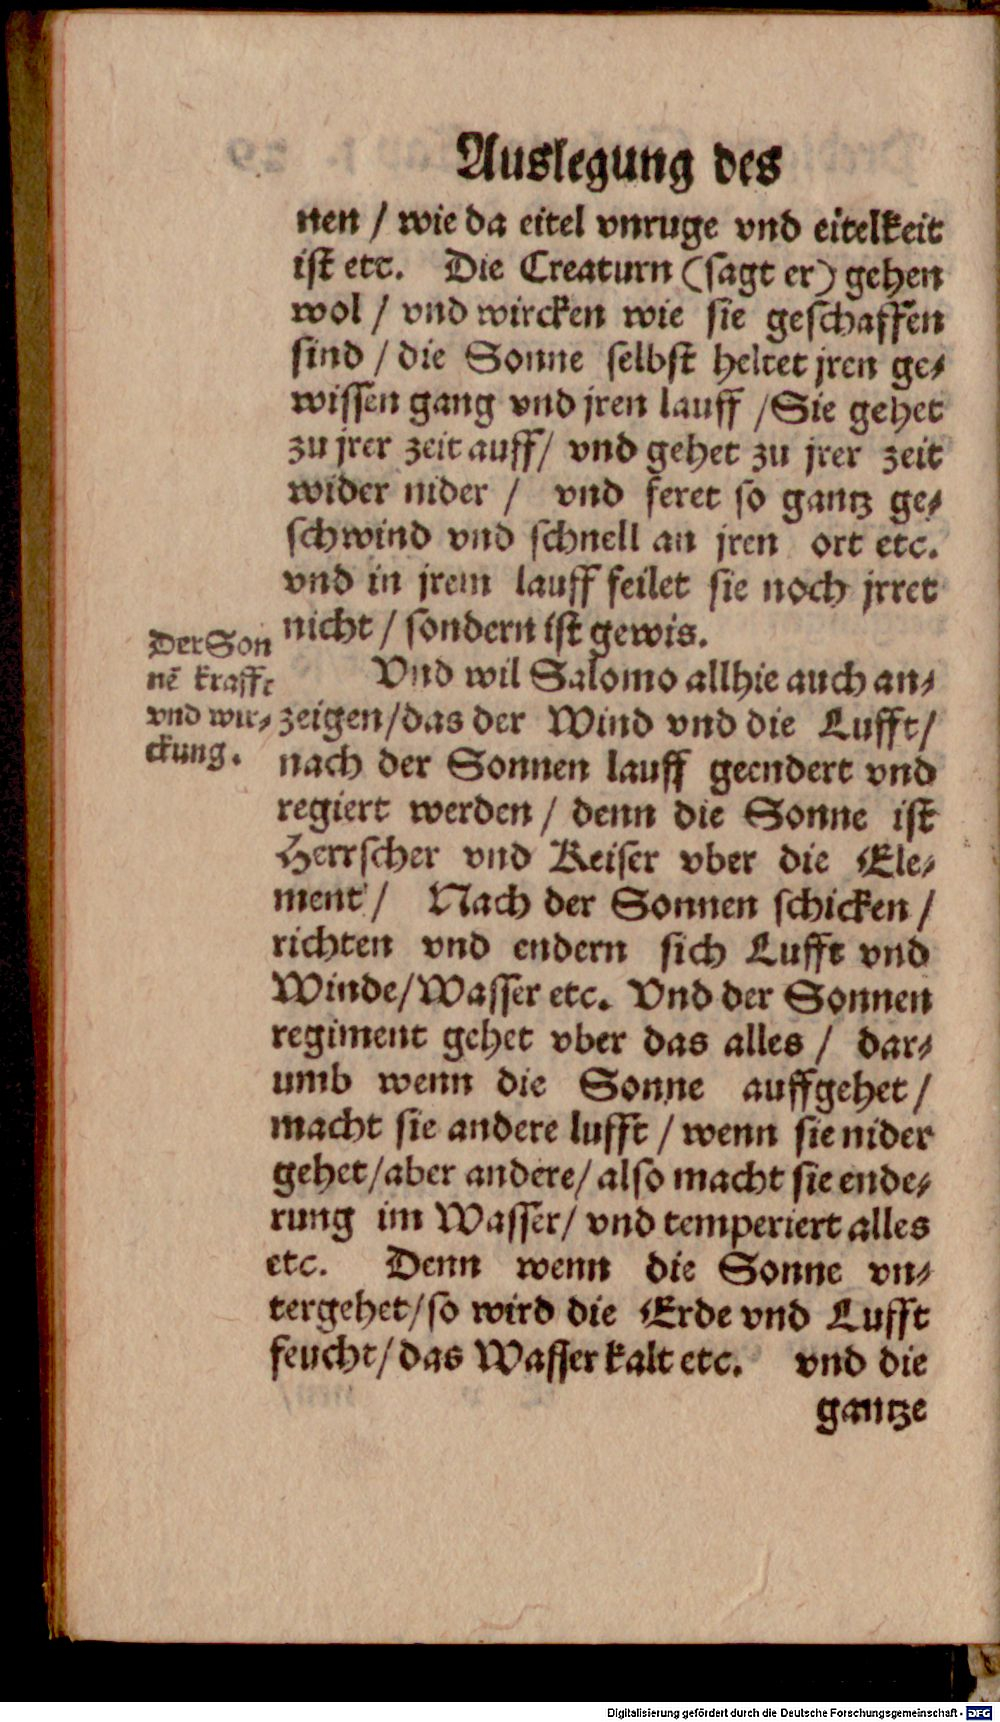 Auslegung des
nen / wie da eitel vnruge vnd eitelkeit
ist etc. Die Creaturn (sagt er) gehen
wol / vnd wircken wie sie geschaffen
sind / die Sonne selbst heltet jren ge-
wissen gang vnd jren lauff / Sie gehet
zu jrer zeit auff / vnd gehet zu jrer zeit
wider nider / vnd feret so gantz ge-
schwind vnd schnell an jren ort etc.
vnd in jrem lauff feilet sie noch jrret
nicht / sondern ist gewis.
Der Son
nē krafft
vnd wir-
ckung.
Vnd wil Salomo allhie auch an-
zeigen / das der Wind vnd die Lufft /
nach der Sonnen lauff geendert vnd
regiert werden / denn die Sonne ist
Herrscher vnd Keiser vber die Ele-
ment / Nach der Sonnen schicken /
richten vnd endern sich Lufft vnd
Winde / Wasser etc. Vnd der Sonnen
regiment gehet vber das alles / dar-
umb wenn die Sonne auffgehet /
macht sie andere lufft / wenn sie nider
gehet / aber andere / also macht sie ende-
rung im Wasser / vnd temperiert alles
etc. Denn wenn die Sonne vn-
tergehet / so wird die Erde vnd Lufft
feucht / das Wasser kalt etc. vnd die
gantze
Digitalisierung gefördert durch die Deutsche Forschungsgemeinschaft - DFG